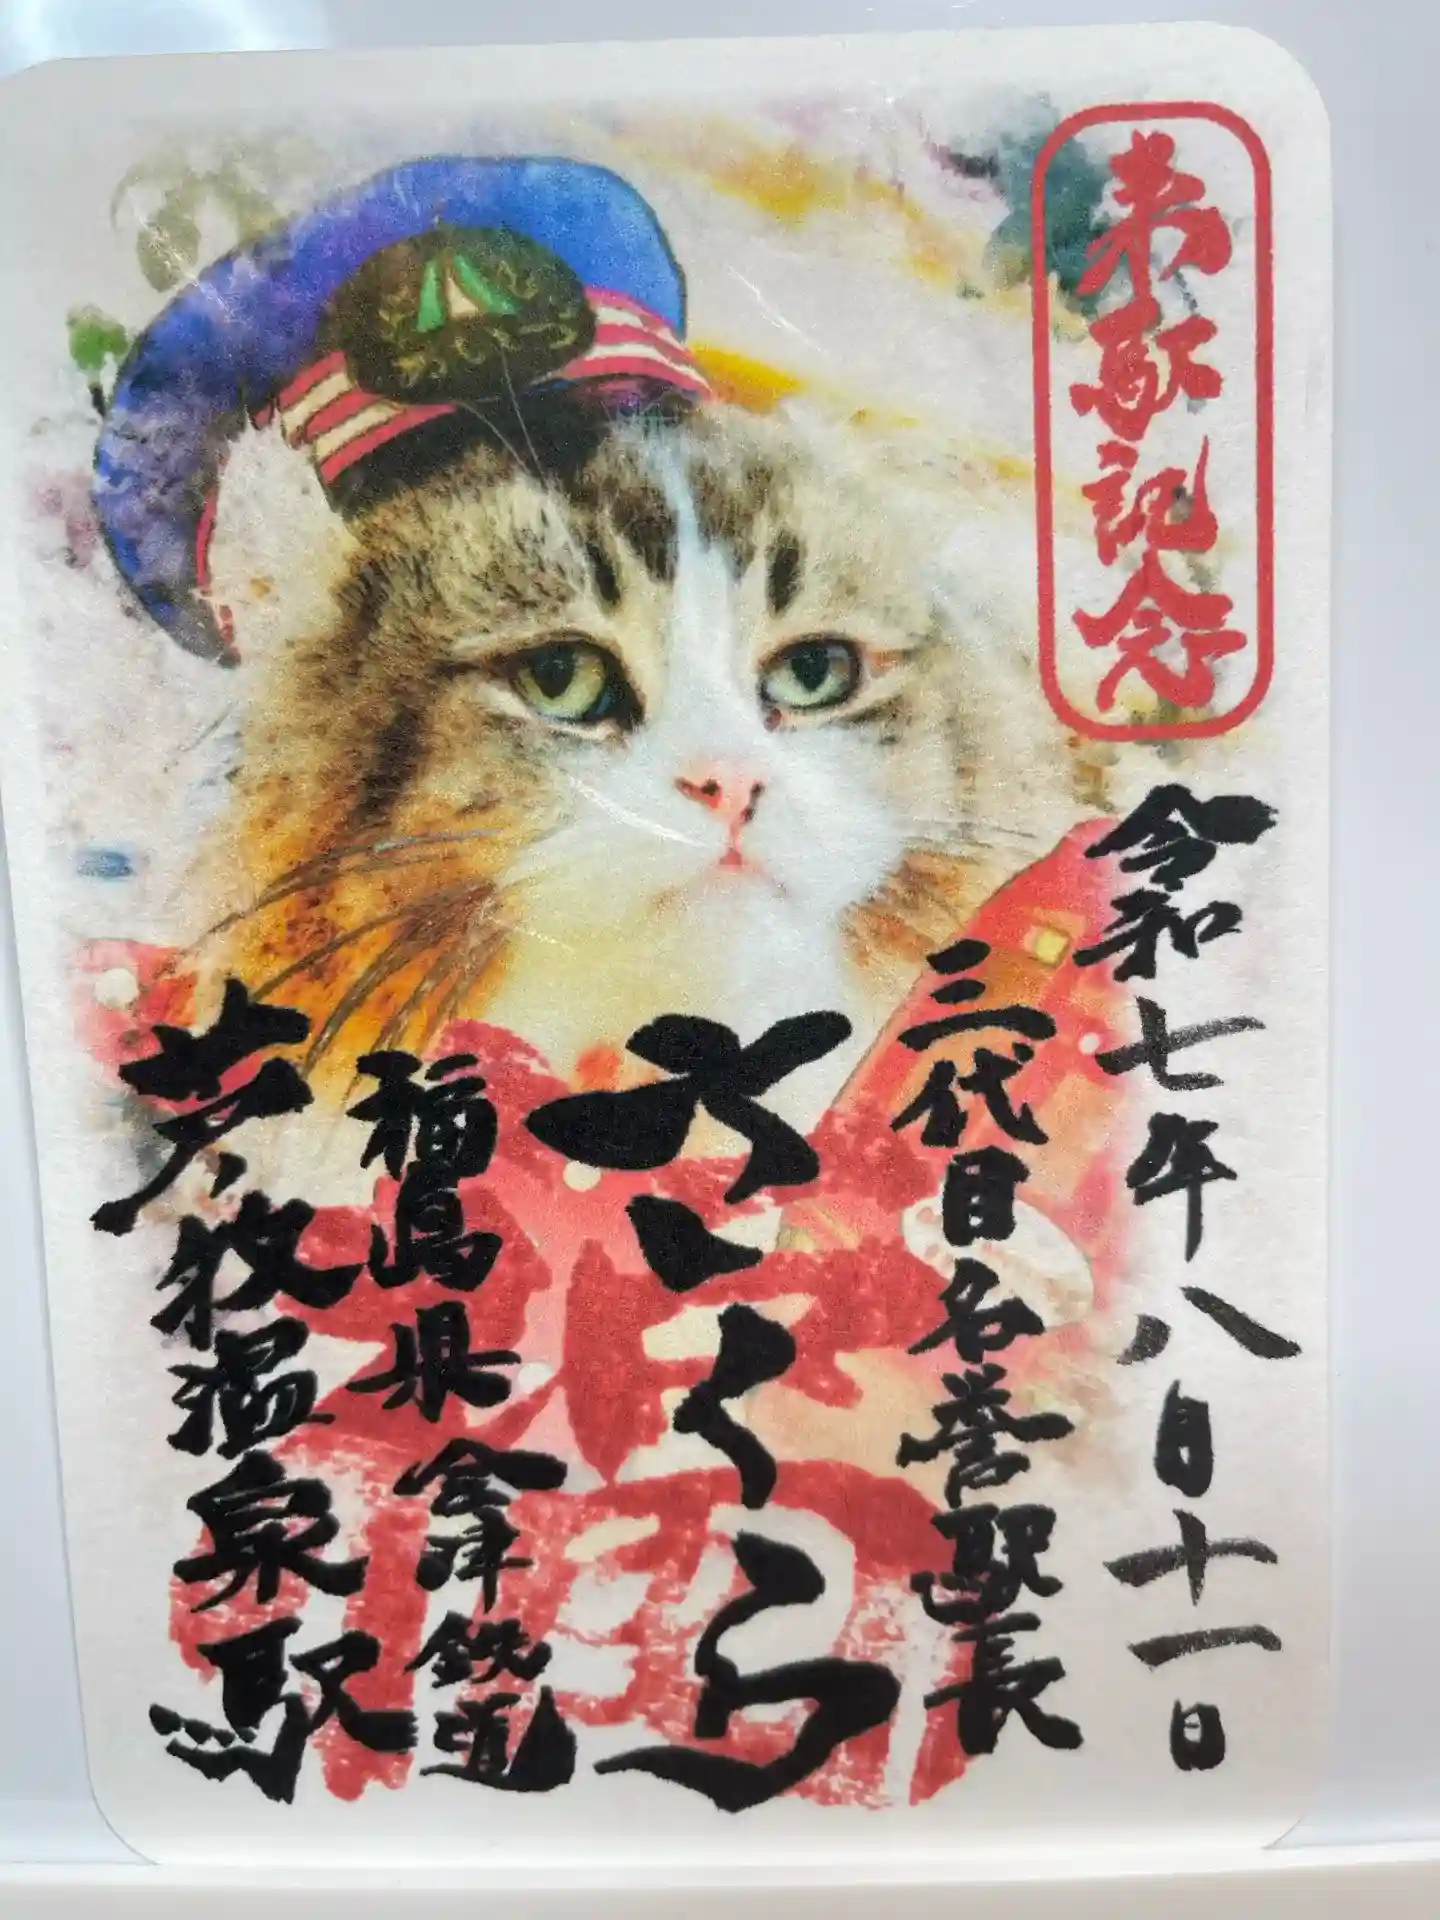 来駅記念
令和七年八月十一日
三代目名誉駅長
さくら
福島県会津鉄道
芦牧温泉駅